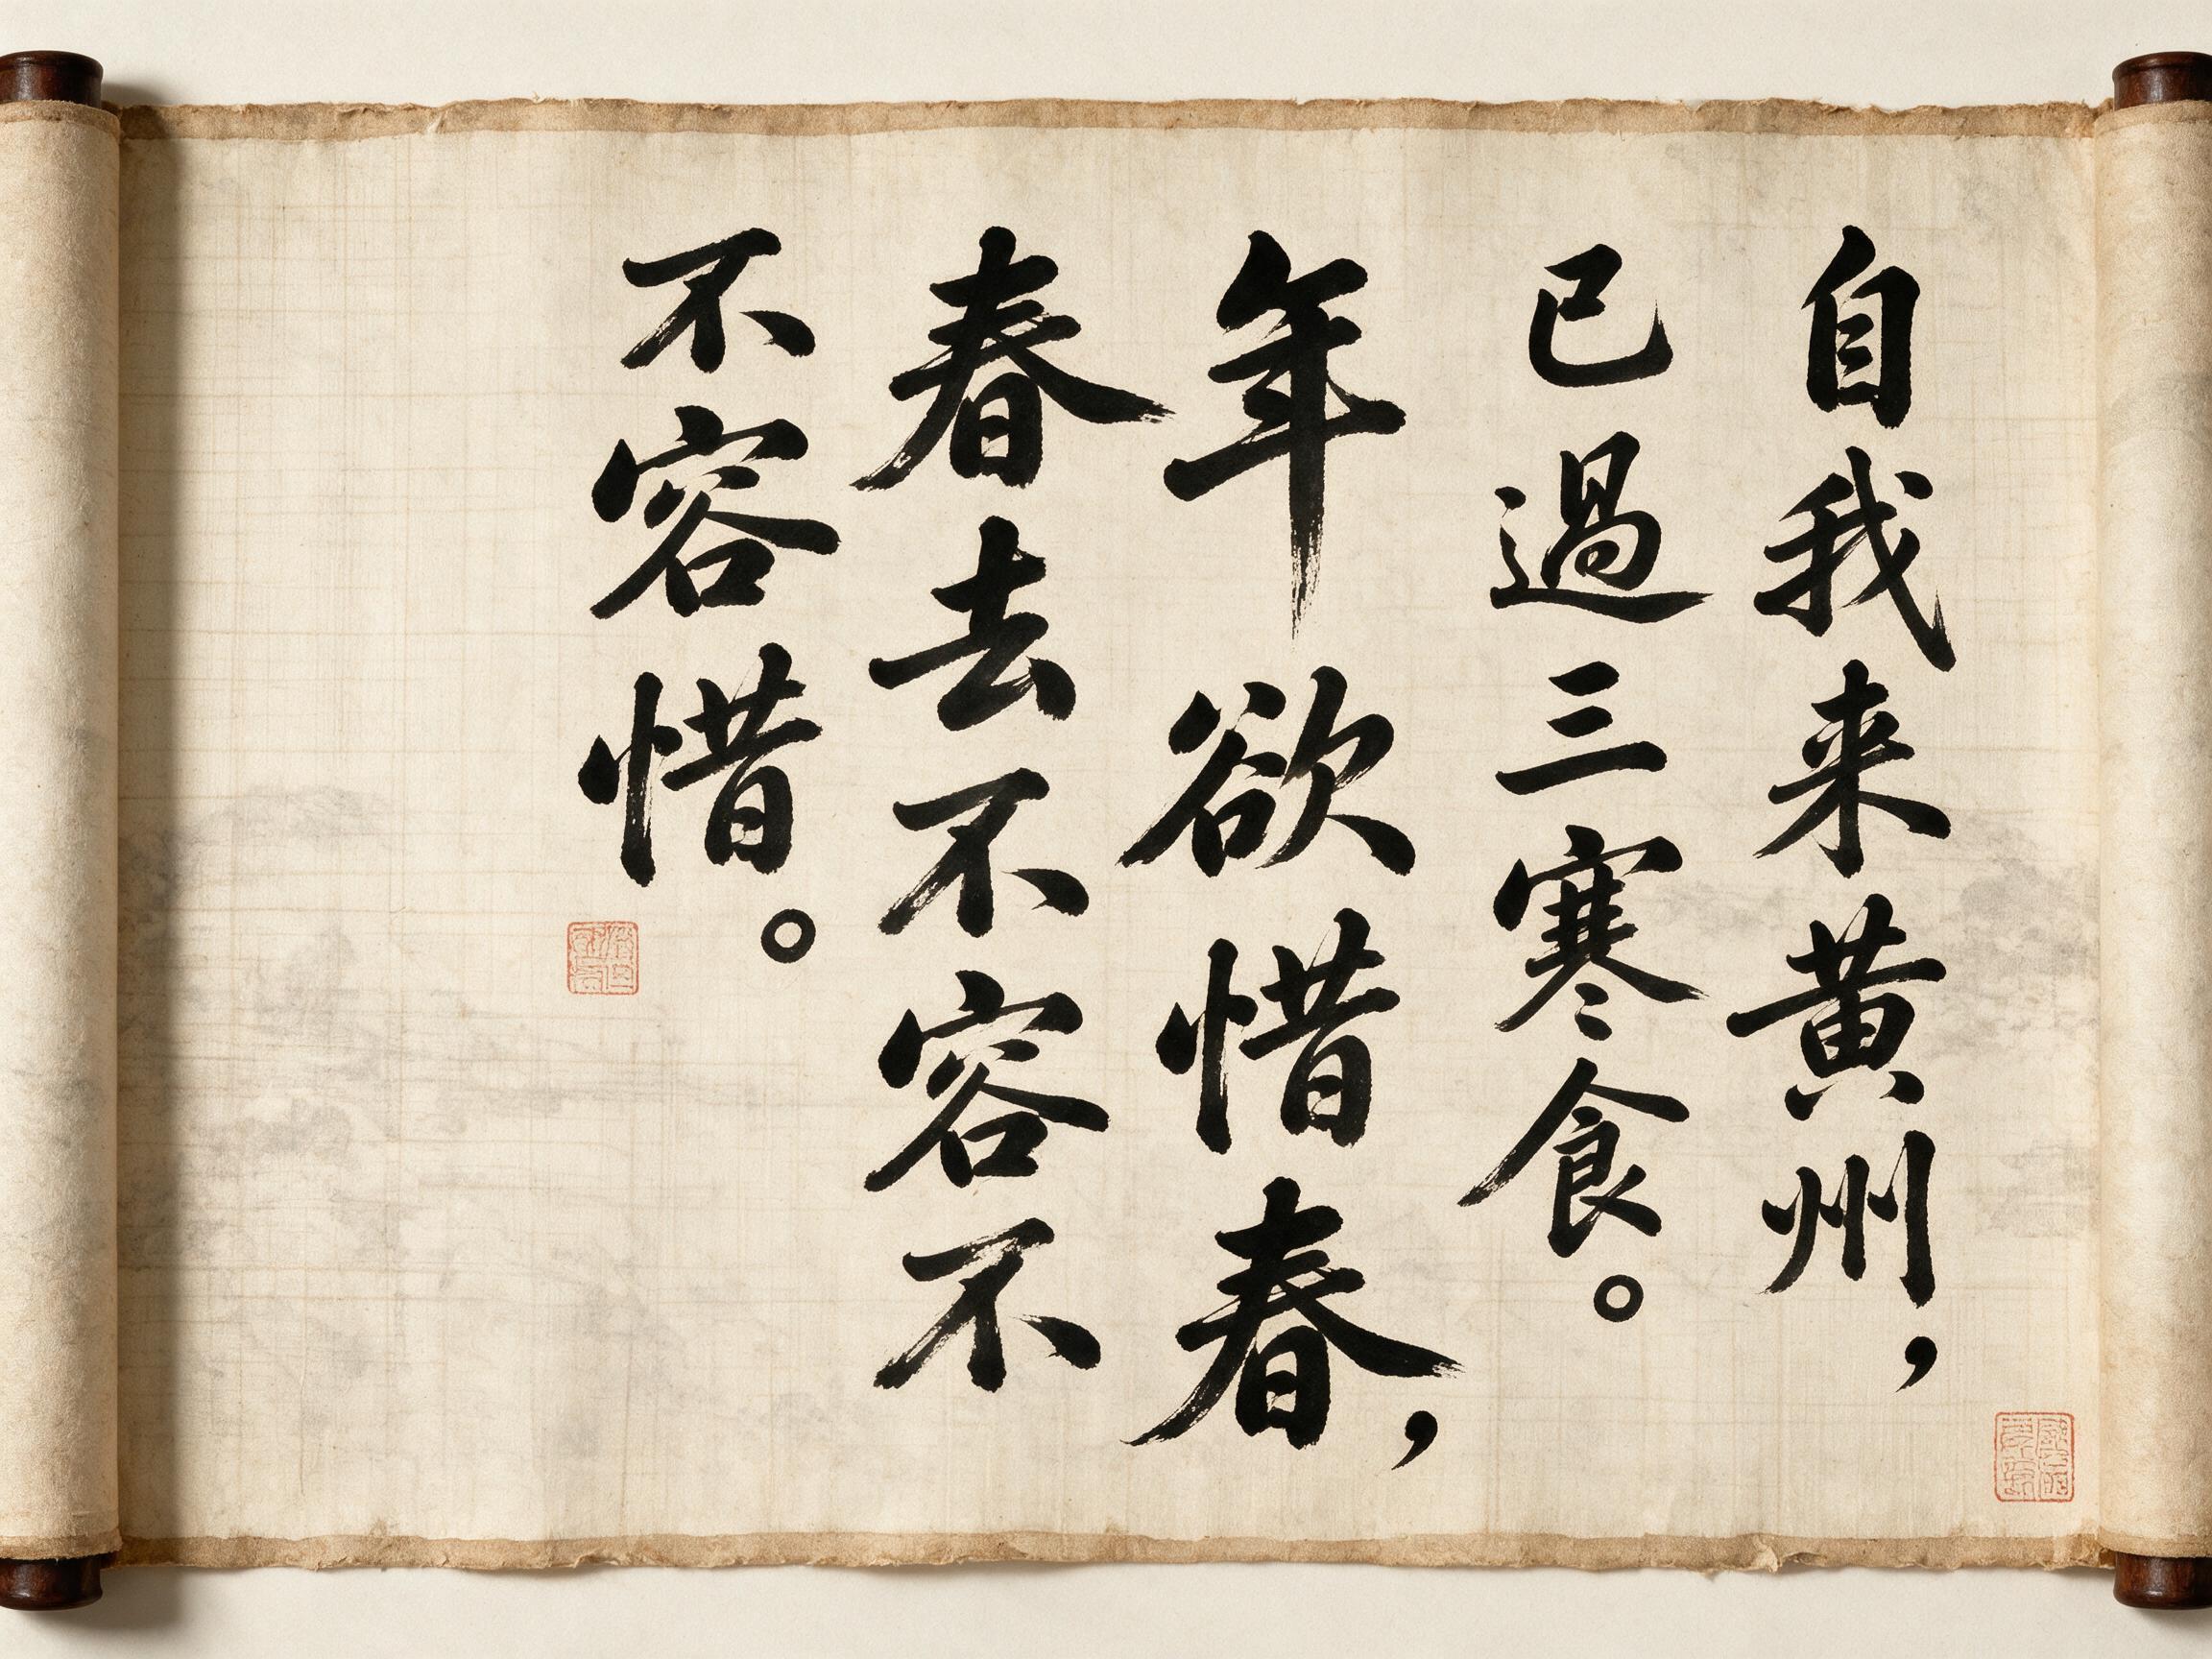 自我来黄州，
已過三寒食。
年欲惜春，
春去不容不
不容惜。